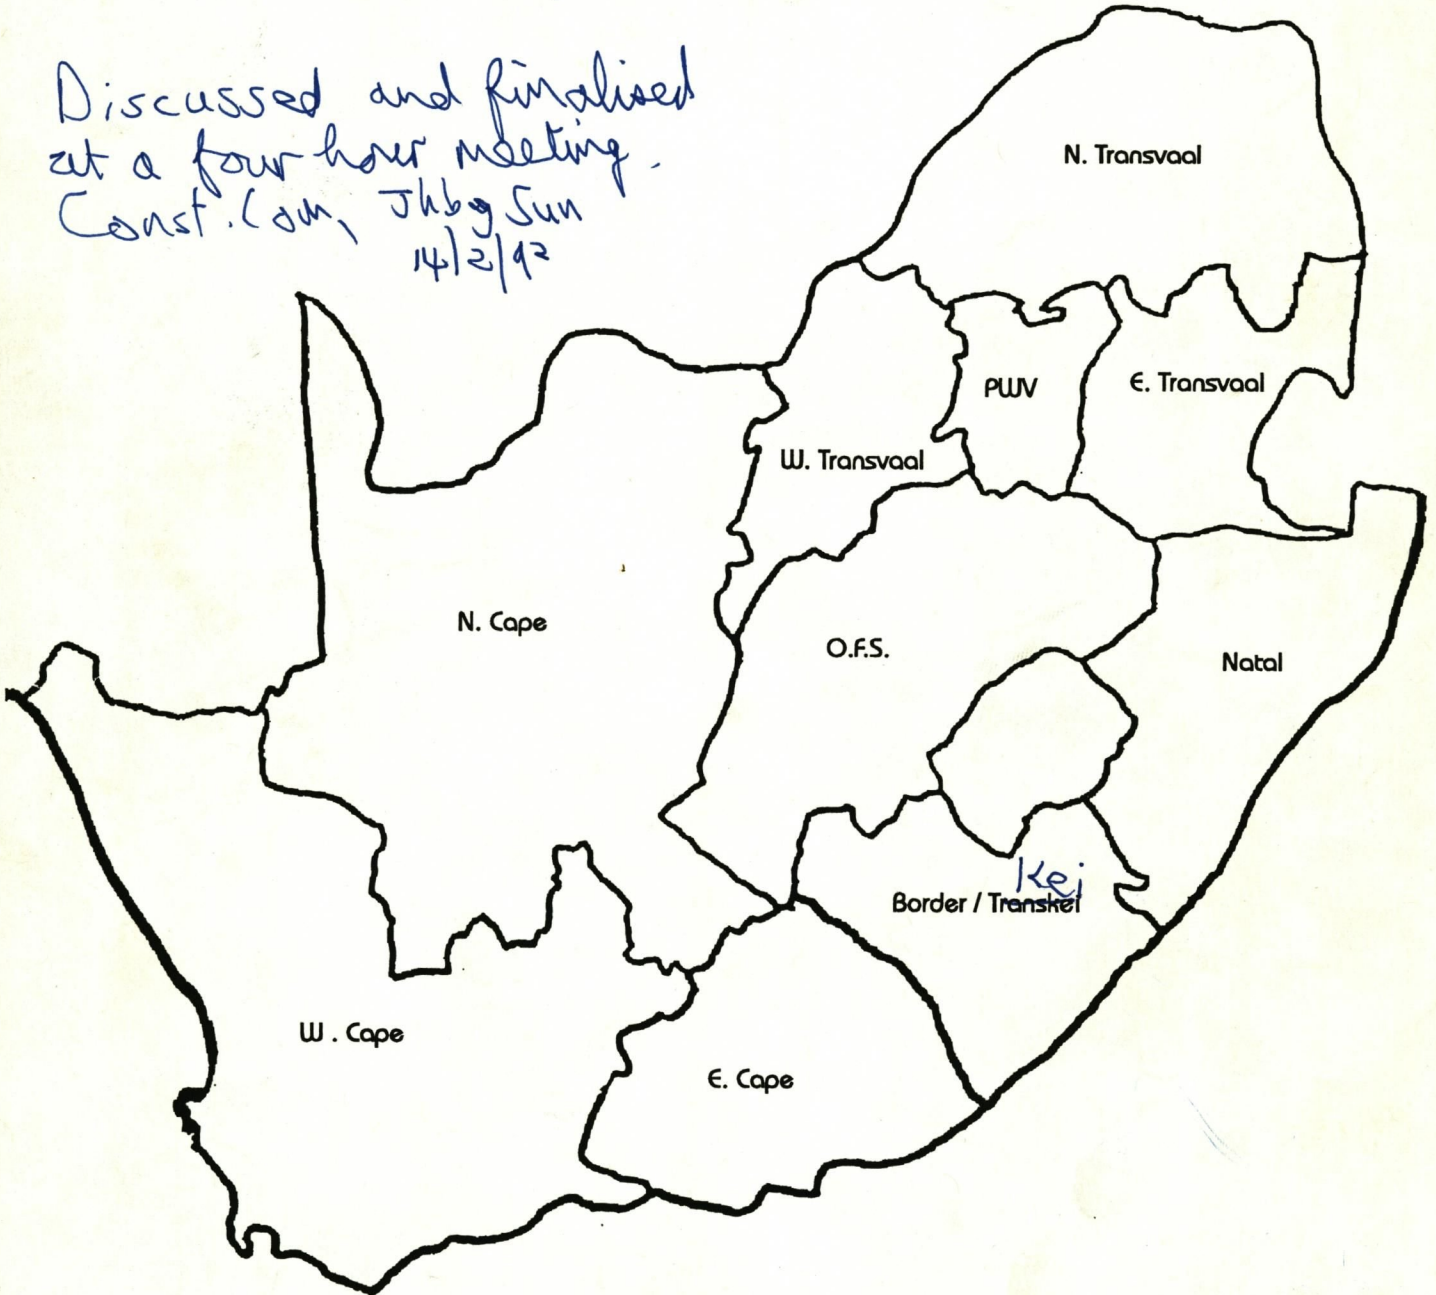 Discussed and finalised
at a four hour meeting.
Const. Com, Jhbg Sun
14/2/92
N. Transvaal
PWV
E. Transvaal
W. Transvaal
N. Cape
O.F.S.
Natal
Kei
Border / Transkei
W. Cape
E. Cape